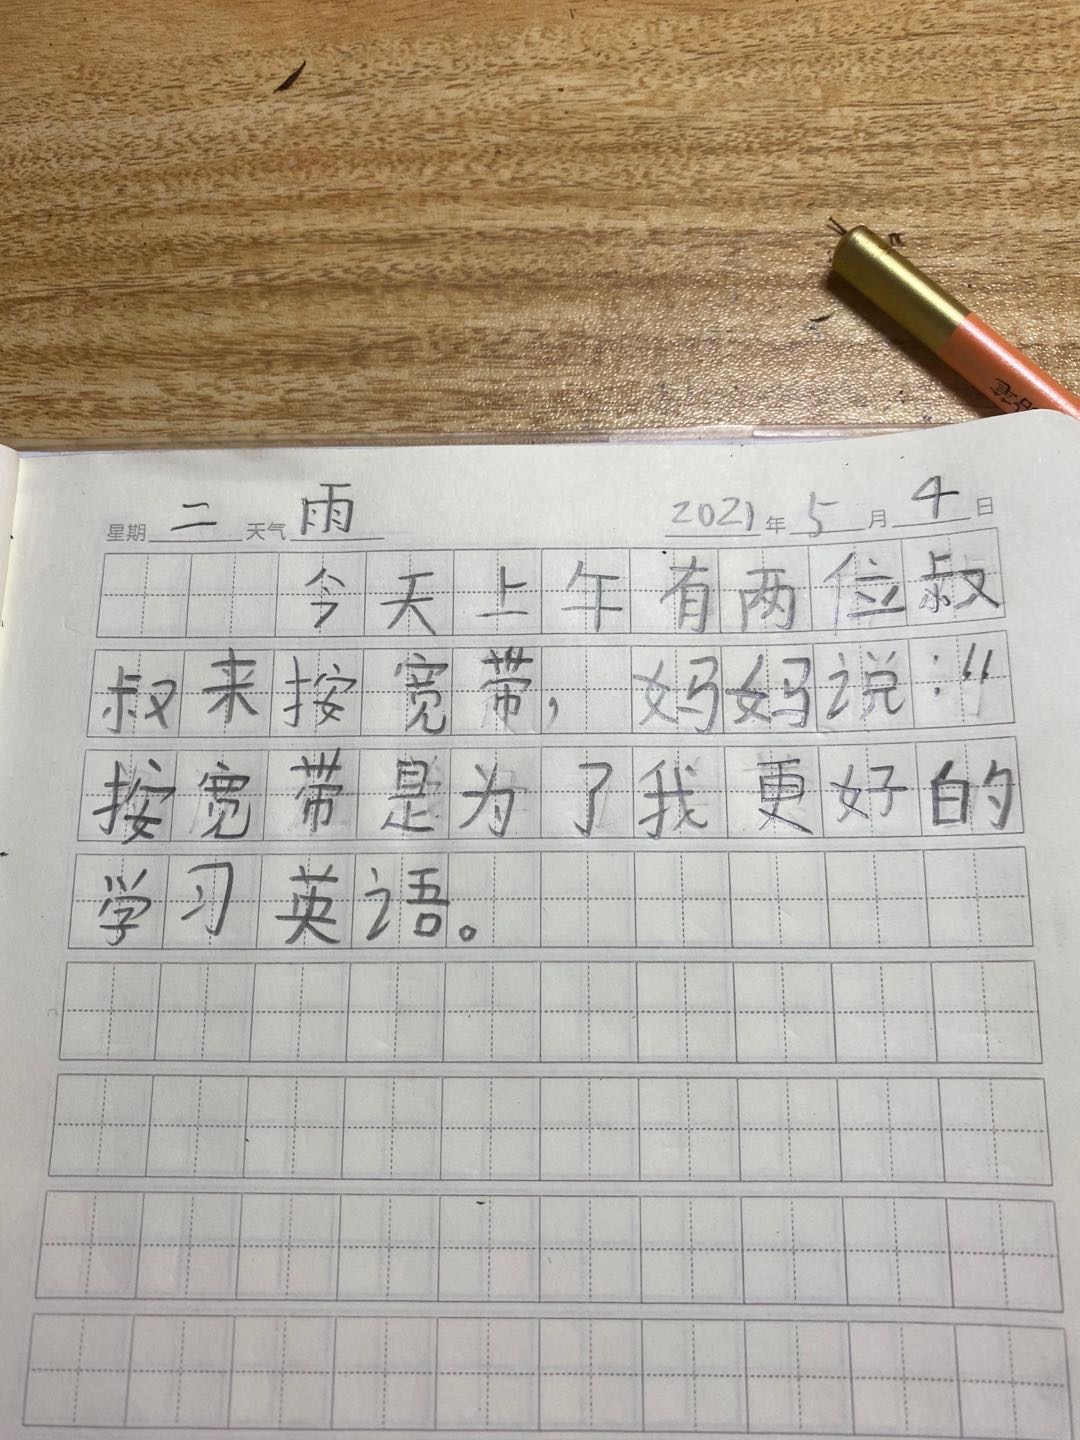 星期 二 天气 雨 2021 年 5 月 4 日
今天上午有两位叔
叔来按宽带，妈妈说：“
按宽带是为了我更好的
学习英语。